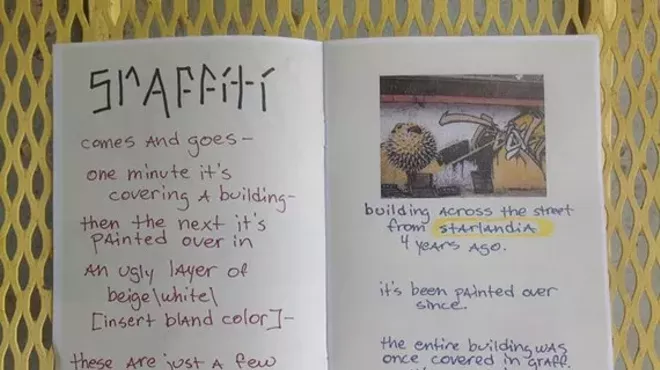 GrAFFiti
comes And goes-
one minute it's
covering A building-
then the next it's
pAinted over in
An ugly lAyer of
beige\white\
[insert blAnd color]-
these Are just A few
building Across the street
from stArlandiA
4 yeArs Ago.
it's been pAinted over
since.
the entire building wAs
once covered in grAff.